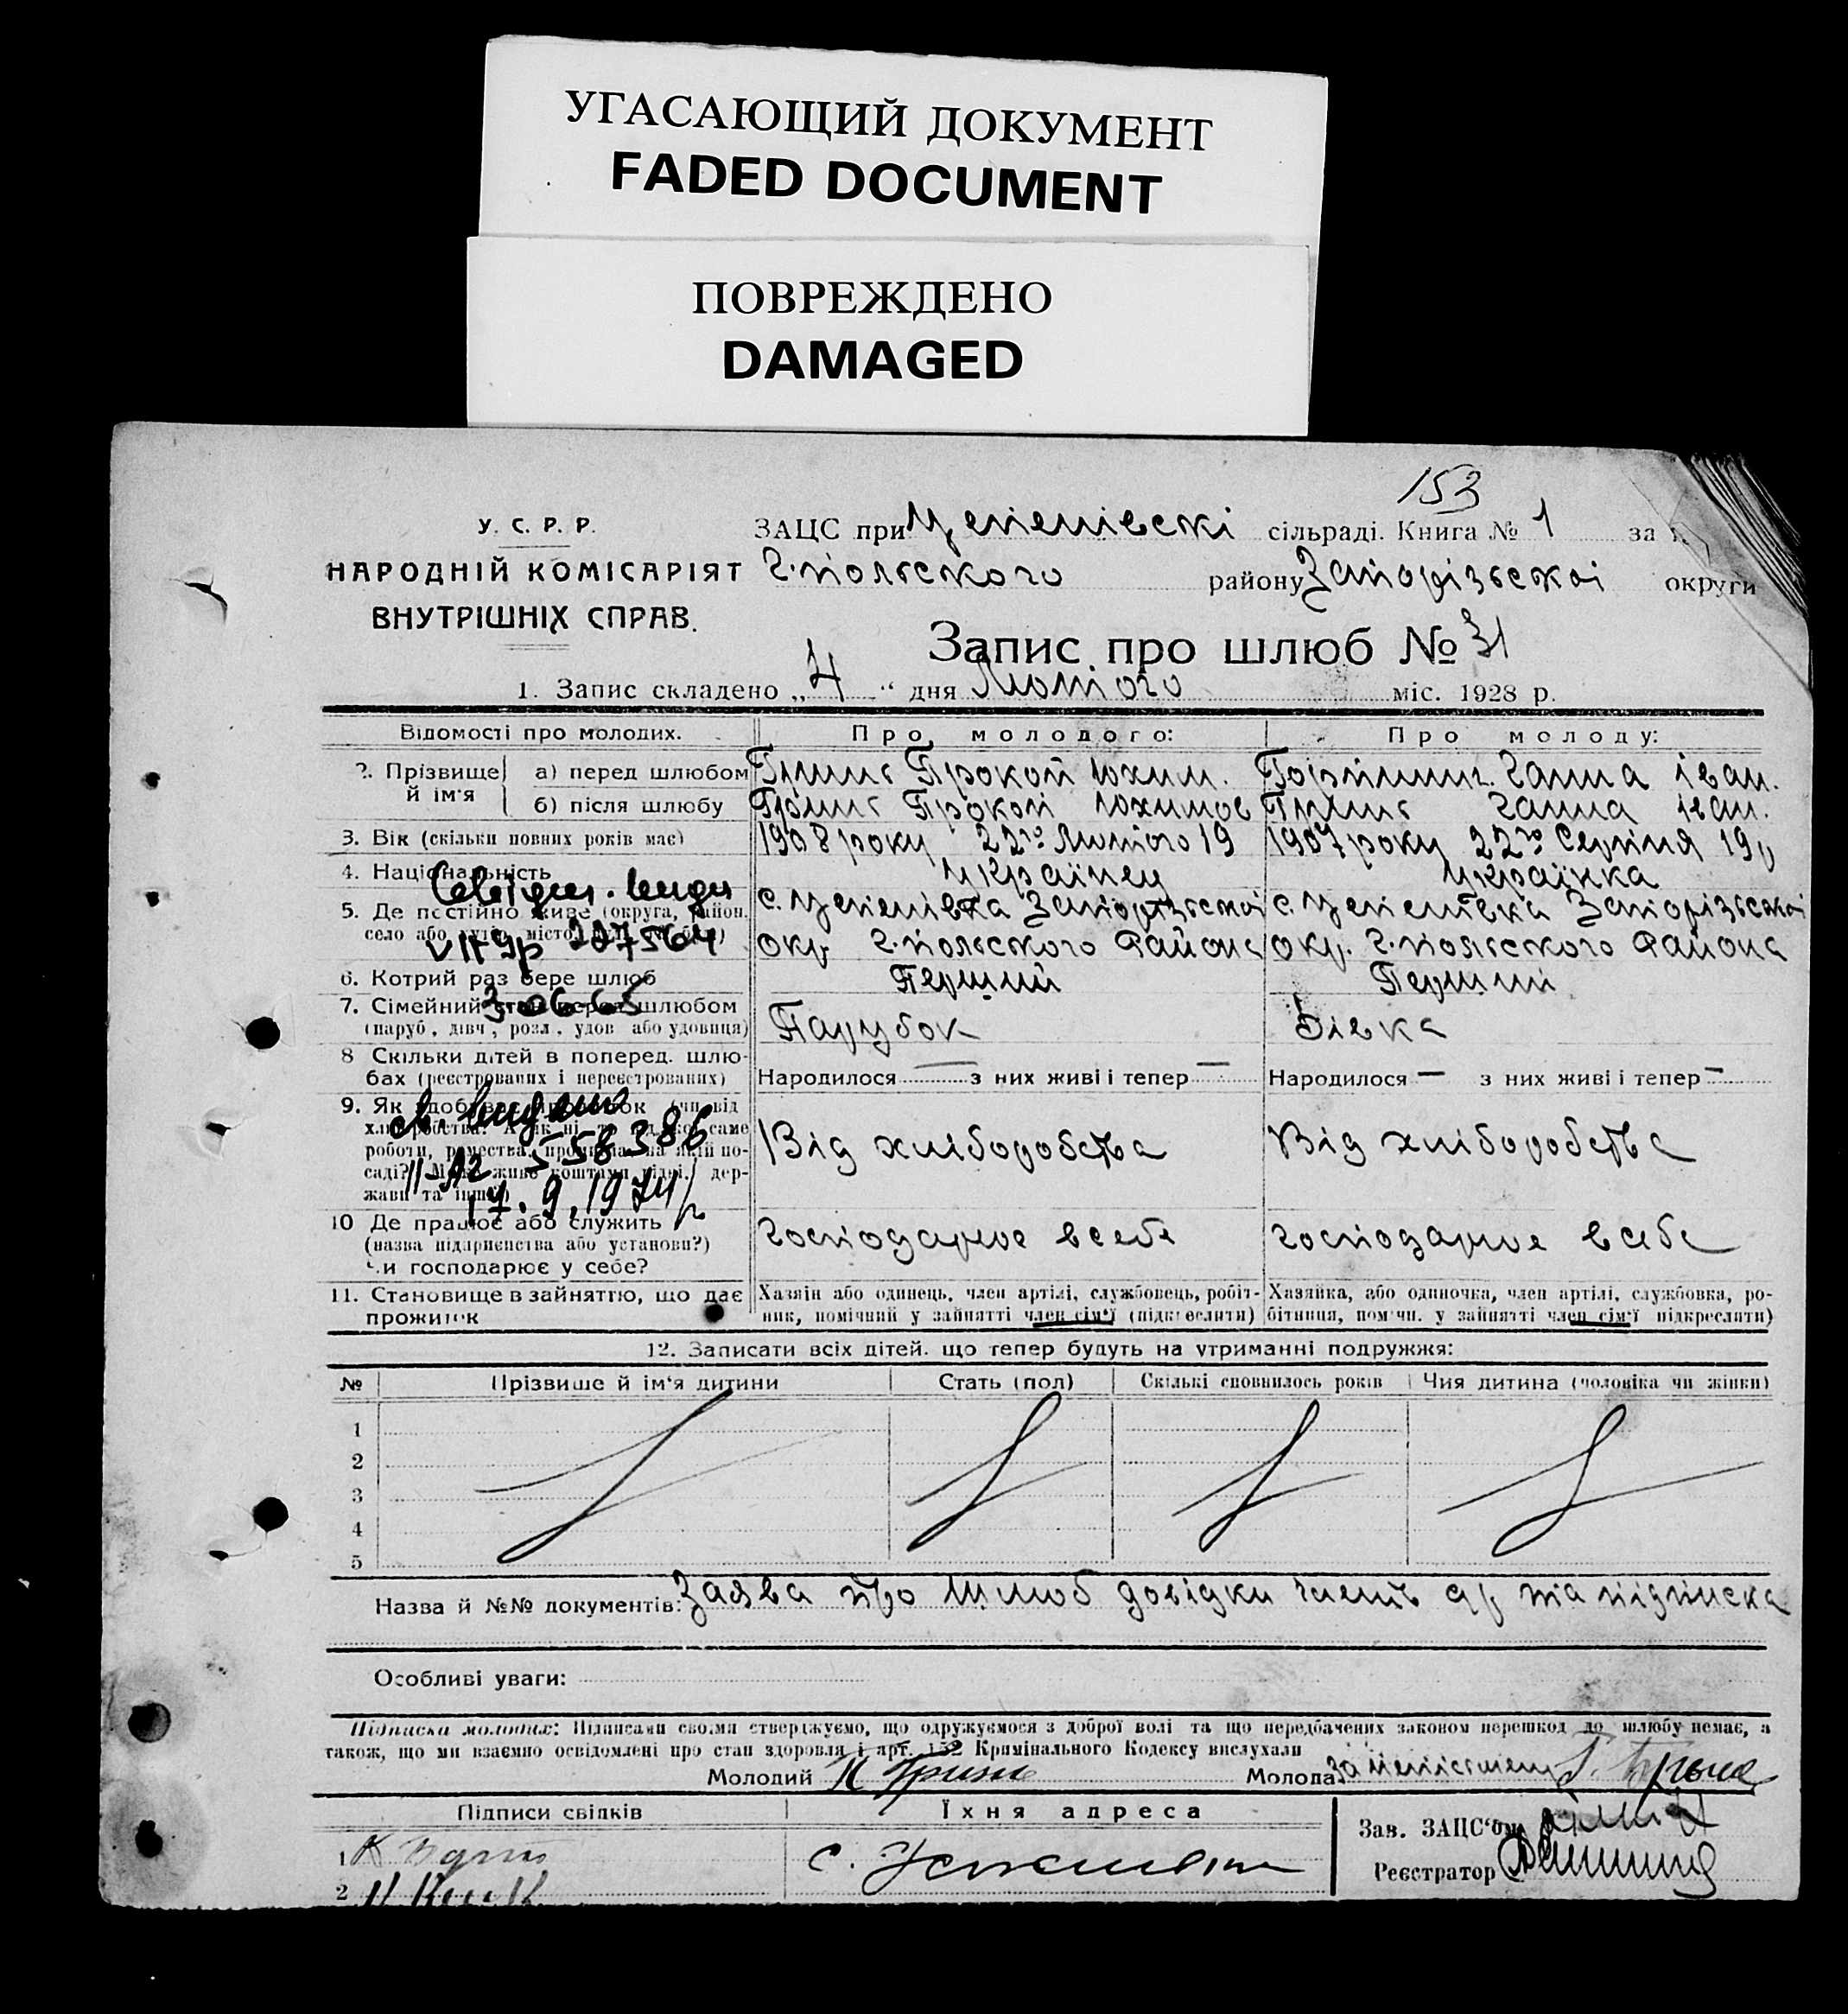 УГАСАЮЩИЙ ДОКУМЕНТ
FADED DOCUMENT
ПОВРЕЖДЕНО
DAMAGED
153
У. С. Р. Р.
НАРОДНІЙ КОМІСАРІЯТ
ВНУТРІШНІХ СПРАВ.
ЗАЦС при сільраді. Книга № 1 за
Г.польского району Запорізьскоі округи
Запис про шлюб № 31
1. Запис складено „4“ дня Лютого міс. 1928 р.
Відомості про молодих. Про молодого: Про молоду:
2. Прізвище й ім'я
а) перед шлюбом Прокоп Юхим. Ганна іван.
б) після шлюбу Прокоп Юхимов Ганна іван.
3. Вік (скільки повних років має) 1908 року 22го Лютого 19 1907 року 22го Серпня
4. Національність Українец Українка
5. Де постійно живе (округа, район, село або хутір, місто,
с. Запорізьскоі с. Запорізьскоі
окр. Г.польского Района окр. Г.польского Района
227564
6. Котрий раз бере шлюб Перший Перший
7. Сімейний стан перед шлюбом
(паруб., дівч., розл., удов. або удовиця) Парубок Дівка
8 Скільки дітей в поперед. шлю-
бах (реєстрованих і нереєстрованих) Народилося — з них живі і тепер — Народилося — з них живі і тепер —
9. Як здобуває прожиток (чи від
хліборобства? саме
роботи, ремества, на якій по-
саді? дер-
жави та інші) Від хліборобства Від хліборобства
558386
17.9.1974 р
10 Де працює або служить
(назва підприємства або установи?)
Чи господарює у себе? Господарює в себе Господарює в себе
11. Становище в зайняттю, що дає
прожиток
Хазяїн або одинець, член артілі, службовець, робіт-
ник, помічний у зайнятті член сім'ї (підкреслити)
Хазяйка, або одиночка, член артілі, службовка, ро-
бітниця, помічн. у зайнятті член сім'ї підкреслити)
12. Записати всіх дітей, що тепер будуть на утриманні подружжя:
№ Прізвище й ім'я дитини Стать (пол) Скількі сповнилось років Чия дитина (чоловіка чи жінки)
1
2
3
4
5
Назва й №№ документів: Заява про шлюб довідки та підписка
Особливі уваги:
Підписки молодих: Підписами своїми стверджуємо, що одружуємося з доброї волі та що передбачених законом перешкод до шлюбу немає, а
також, що ми взаємно освідомлені про стан здоровля і арт. 152 Кримінального Кодексу вислухали
Молодий Молода
Підписи свідків Їхня адреса
Зав. ЗАЦС'ом
1 с.
Реєстратор
2